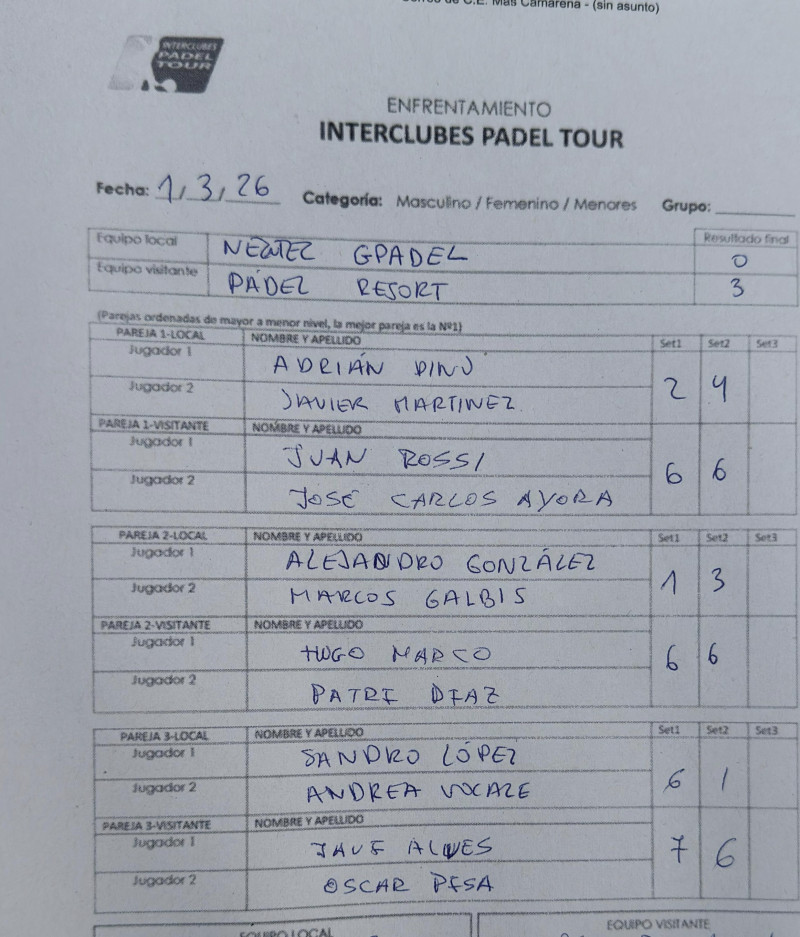 Correo de C.E. Mas Camarena - (sin asunto)
INTERCLUBES
PADEL
TOUR
ENFRENTAMIENTO
INTERCLUBES PADEL TOUR
Fecha: 1, 3, 26 Categoría: Masculino / Femenino / Menores Grupo:
Equipo local GPADEL Resultado final 0
Equipo visitante PÁDEL RESORT 3
(Parejas ordenadas de mayor a menor nivel, la mejor pareja es la Nº1)
PAREJA 1-LOCAL NOMBRE Y APELLIDO Set1 Set2 Set3
Jugador 1 ADRIÁN 2 4
Jugador 2 JAVIER MARTINEZ
PAREJA 1-VISITANTE NOMBRE Y APELLIDO
Jugador 1 JUAN ROSSI 6 6
Jugador 2 JOSÉ CARLOS AYORA
PAREJA 2-LOCAL NOMBRE Y APELLIDO Set1 Set2 Set3
Jugador 1 ALEJANDRO GONZÁLEZ 1 3
Jugador 2 MARCOS GALBIS
PAREJA 2-VISITANTE NOMBRE Y APELLIDO
Jugador 1 HUGO MARCO 6 6
Jugador 2 PATRI DÍAZ
PAREJA 3-LOCAL NOMBRE Y APELLIDO Set1 Set2 Set3
Jugador 1 SANDRO LÓPEZ 6 1
Jugador 2 ANDREA
PAREJA 3-VISITANTE NOMBRE Y APELLIDO
Jugador 1 7 6
Jugador 2 OSCAR
EQUIPO LOCAL EQUIPO VISITANTE